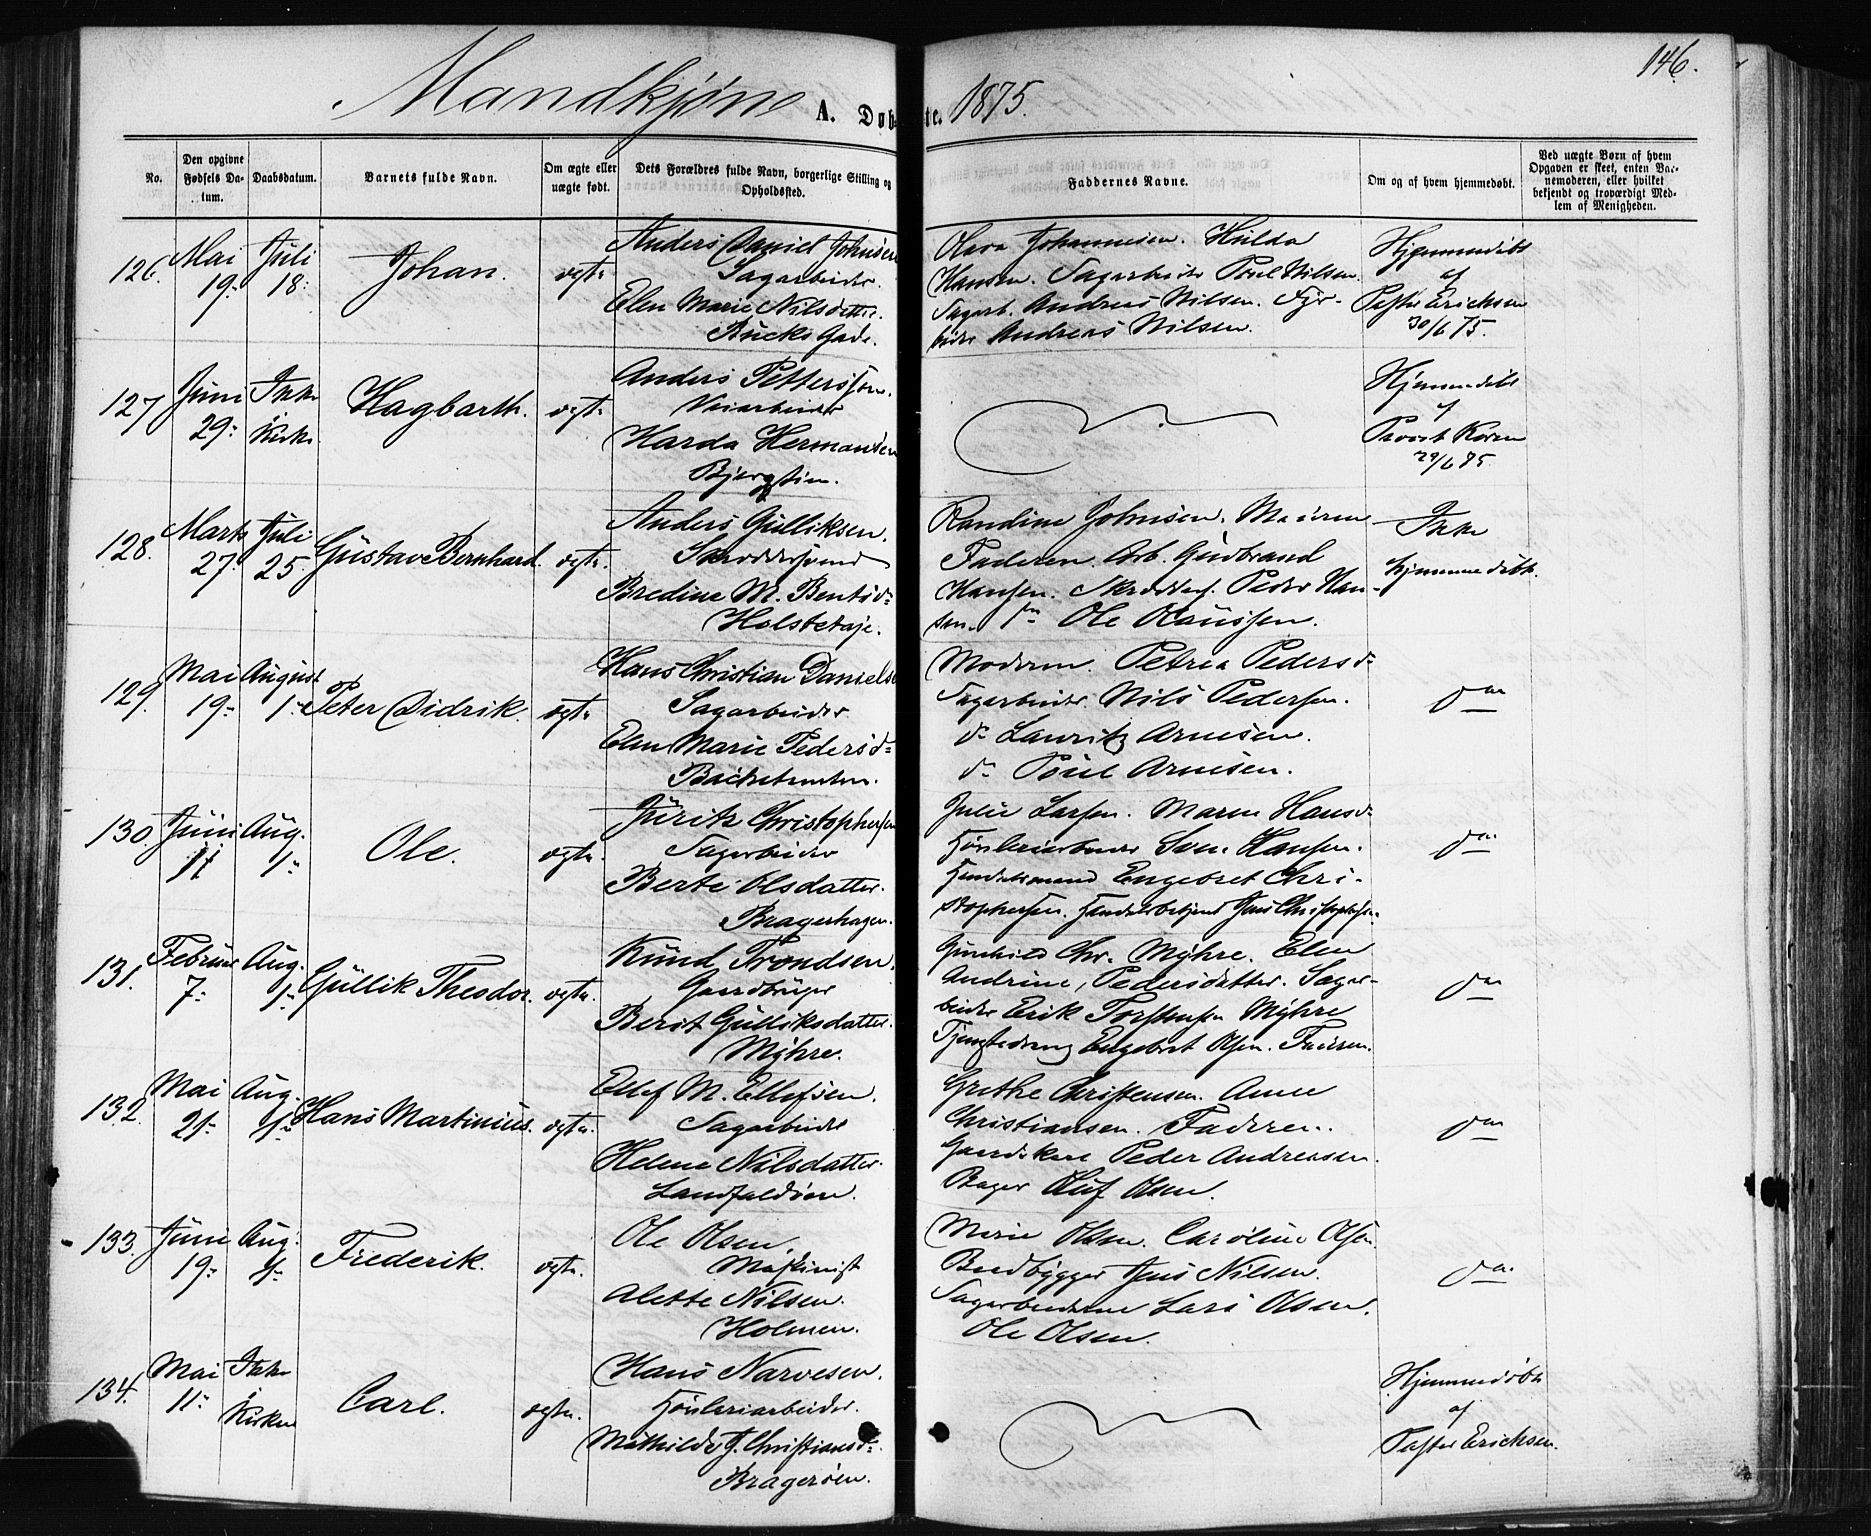 Mandkjøn A. Døbte. 1875. 146.
No. Den opgivne Fødsels Datum. Daabsdatum. Barnets fulde Navn. Om ægte eller uægte født. Dets Forældres fulde Navn, borgerlige Stilling og Opholdssted. Faddernes Navne. Om og af hvem hjemmedøbt. Ved uægte Børn af hvem Opgaven er skeet, enten Barnemoderen, eller hvilket bekjendt og troværdigt Medlem af Menigheden.
126. Mai 19. Juli 18. Johan. ægte
Anders Daniel Johnsen
Sagarbeider.
Elen Marie Nilsdatter.
Bucks Gade.
Olava Johannesen. Hulda
Hansen. Sagarbeider Poul Nilsen.
Sagarb. Andreas Nilsen. Fyr-
bøder Andreas Nilsen.
Hjemmedøbt
af
Pastor Ericksen
30/6 75.
127 Juni 29. Ikke i Kirke Hagbarth. ægte
Anders Pettersen.
Veiarbeider
Harda Hermansen
Bjergstien.
Hjemmedøbt
af
Provst Koren
29/6 75.
128. Marts 27. Juli 25. Gustav Bernhard. ægte.
Anders Gulliksen.
Skræddersvend
Bredine M. Bentsd.
Holstetøje.
Randine Johnsen. Maren
Faderen. Arb. Gudbrand
Hansen. Skrædders. Peder Han-
sen. do Ole Olaussen.
Ikke
hjemmedøbt.
129. Mai 19. August 1. Peter Didrik. ægte
Hans Christian Danielsen
Sagarbeider
Elen Marie Pedersd.
Bachetomten.
Moderen. Petrea Pedersd.
Sagarbeider Nils Pedersen.
do Lauritz Arnesen.
do Poul Arnesen.
do
130. Juni 11 Aug. 1. Ole. ægte.
Juritz Christophersen
Sagarbeider
Berte Olsdatter.
Bragerhagen.
Julie Larsen. Maren Hansd.
Høvleriarbeider Sven Hansen.
Handelsmand Engebret Chri-
stophersen. Handelsbetjent Jens Christophersen.
do
131. Februar 7. Aug. 1. Gullik Theodor. ægte.
Knud Trondsen.
Gaardbruger
Berit Gulliksdatter.
Myhre.
Gunhild Chr. Myhre. Elen
Andrine Pedersdatter. Sagar-
beider Erik Torstensen Myhre
Tjenstedreng Engebret Olsen. Faderen.
do
132. Mai 21. Aug. 1. Hans Martinius. ægte.
Ellef M. Ellefsen.
Sagarbeider
Helene Nilsdatter.
Landfaldøen.
Grethe Christensen. Anne
Christiansen. Faderen.
Gaardskarl Peder Andreasen.
Bager Oluf Olsen.
do
133. Juni 19. Aug. 1. Frederik. ægte.
Ole Olsen.
Maskinist
Alette Nilsen.
Holmen.
Marie Olsen. Caroline Olsen.
Baadbygger Jens Nilsen.
Sagarbeiderne Lars Olsen.
Ole Olsen.
do
134. Mai 11. Ikke i Kirken Carl. ægte.
Hans Narvesen.
Høvleriarbeider.
Mathilde J. Christiansd.
Bragerøen.
Hjemmedøbt
af
Pastor Ericksen.